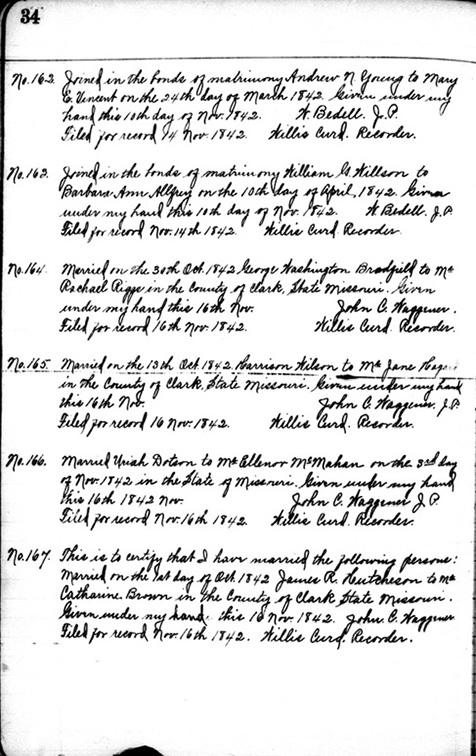 34
No. 162. Joined in the bonds of matrimony Andrew N Young to Mary
E. Vincent on the 24th day of March 1842. Given under my
hand this 10th day of Nov. 1842. W. Bedell. J.P.
Filed for record 14 Nov. 1842. Willis Curd. Recorder.
No. 163. Joined in the bonds of matrimony William G. Willson to
Barbara Ann Allfrey on the 10th day of April, 1842. Given
under my hand this 10th day of Nov. 1842. W Bedell. J.P.
Filed for record Nov. 14th 1842. Willis Curd. Recorder.
No. 164. Married on the 30th Oct. 1842 George Washington Bradfield to Ms
Rachael Riggs in the County of Clark, State Missouri. Given
under my hand this 16th Nov. John C. Waggener.
Filed for record 16 Nov. 1842. Willis Curd. Recorder.
No. 165. Married on the 13th Oct 1842 Harrison Wilson to Ms Jane
in the County of Clark, State Missouri. Given under my hand
this 16th Nov. John C. Waggener, J.P.
Filed for record 16 Nov. 1842. Willis Curd. Recorder.
No. 166. Married Uriah Dotson to Ms Ellenor McMahan on the 3rd day
of Nov. 1842 in the State of Missouri. Given under my hand
this 16th 1842 Nov. John C. Waggener J.P.
Filed for record Nov. 16th 1842. Willis Curd. Recorder.
No. 167. This is to certify that I have married the following persons:
Married on the 1st day of Oct. 1842 James R. Hutcheson to Ms
Catharine Brown in the County of Clark State Missouri.
Given under my hand, this 16 Nov. 1842. John. C. Waggener
Filed for record Nov. 16th 1842. Willis Curd. Recorder.